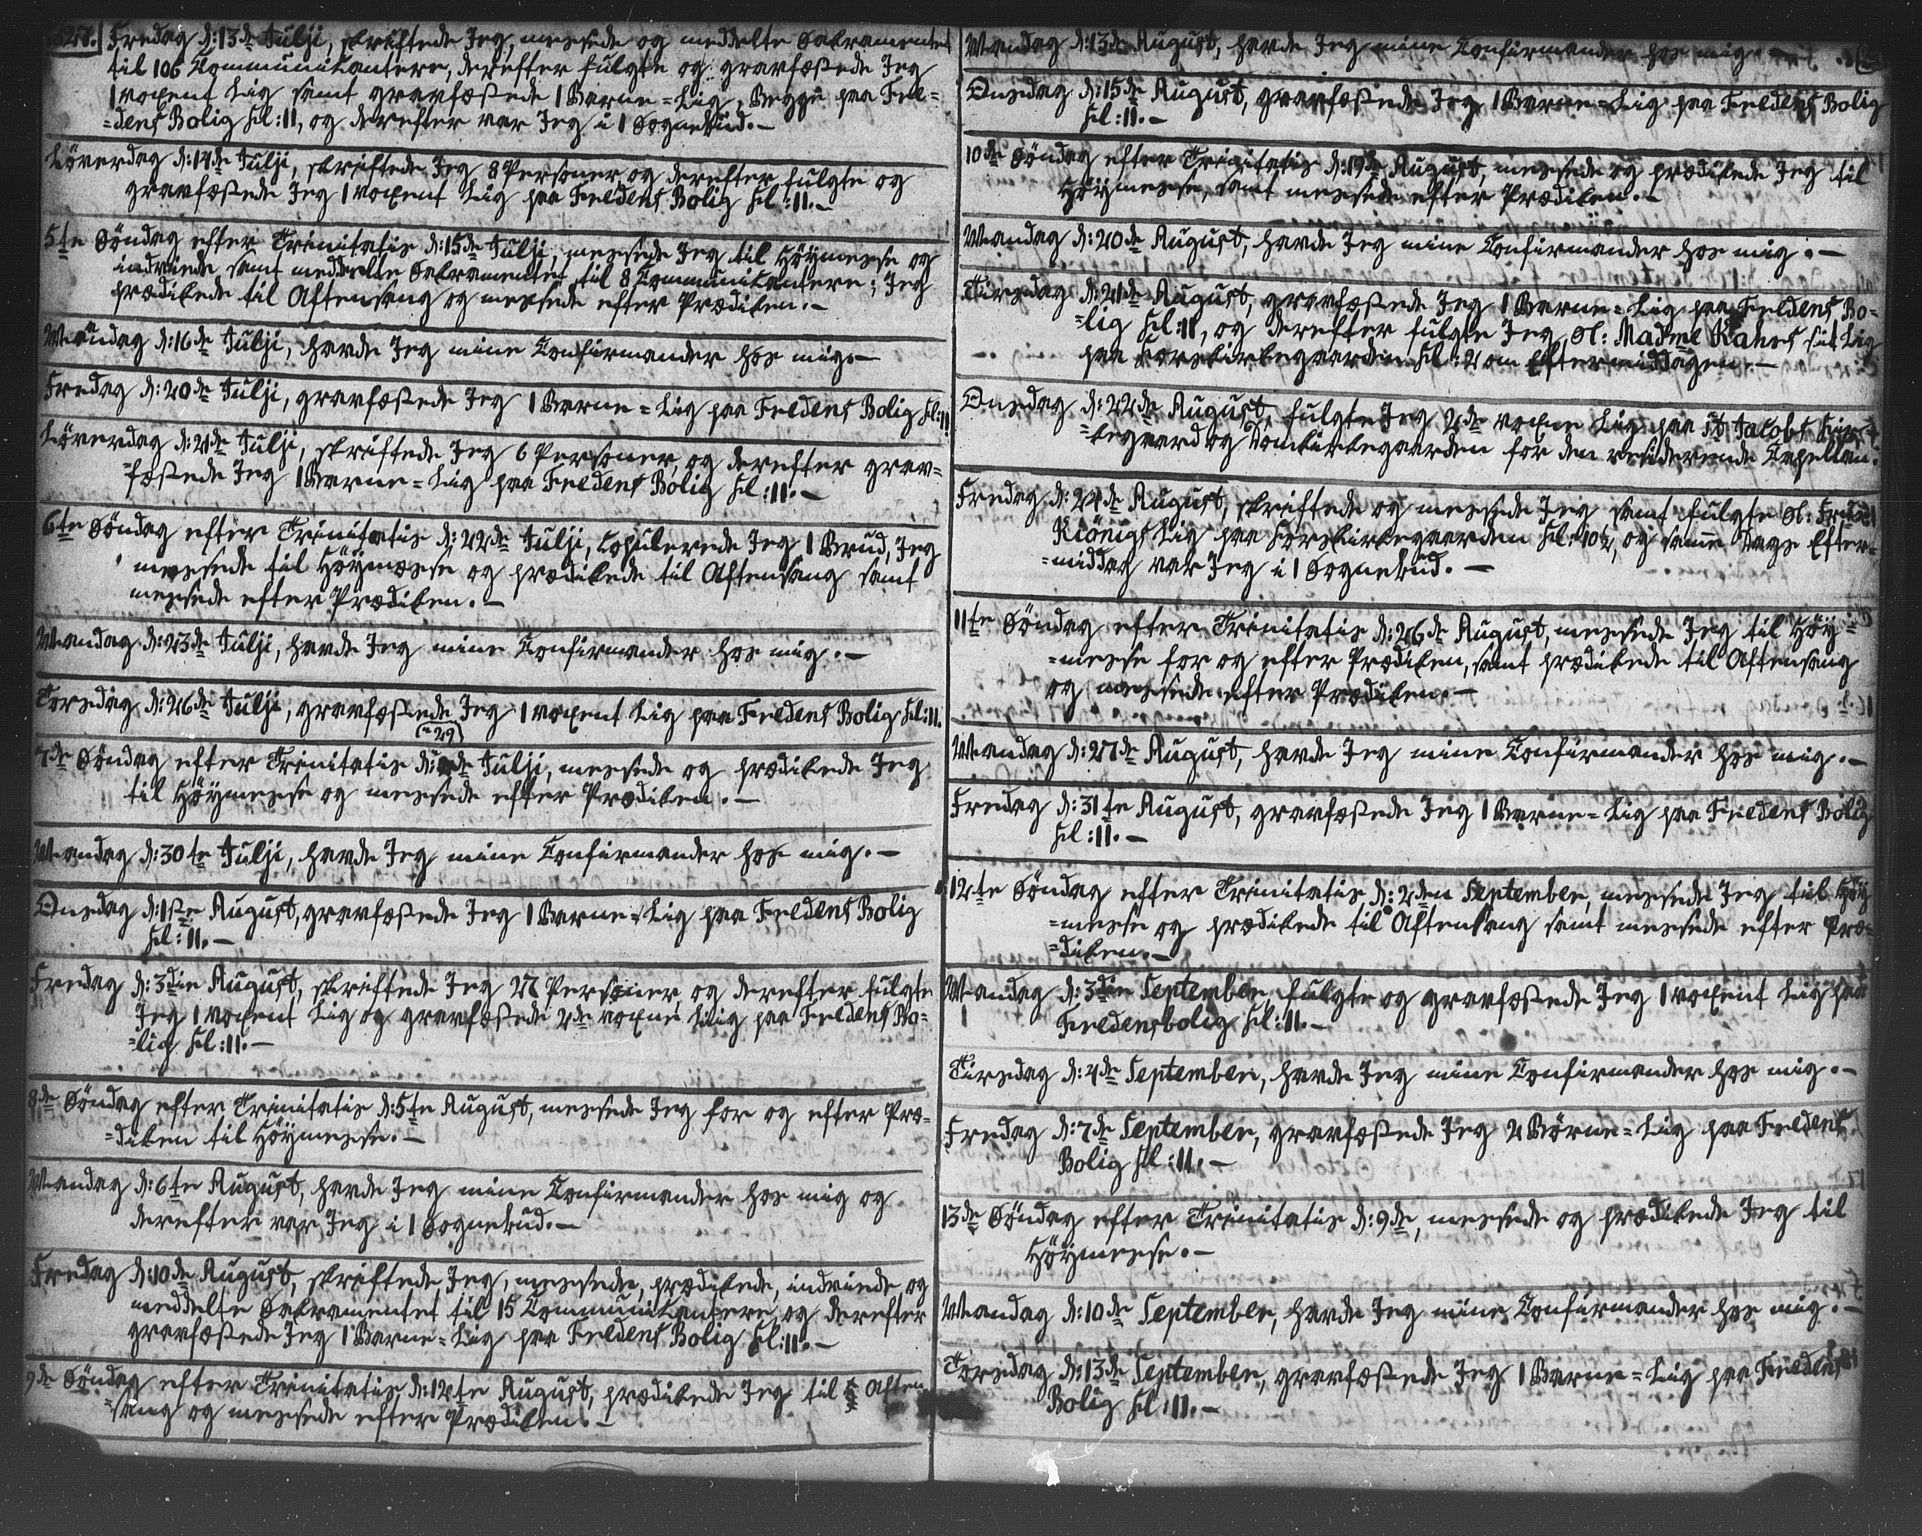 Fredag d: 13de Julji, skriftede Jeg, messede og meddelte Sakramentet
til 106 Communikantere, derefter fulgte og gravfæstede Jeg
1 voxent Lig samt gravfæstede 1 Barne=Lig, Begge paa Fre-
=dens Bolig Kl: 11, og derefter var Jeg i 1 Sognebud.-
Löverdag d: 14de Julji, skriftede Jeg 8 Personer og derefter fulgte og
gravfæstede Jeg 1 voxent Lig paa Fredens Bolig Kl: 11.-
5te Söndag efter Trinitatis d: 15de Julji, messede Jeg til Höymesse og
indviede samt meddelte Sakramentet til 8 Communikantere; Jeg
prædikede til Aftensang og messede efter Prædiken.-
Mandag d: 16de Julji, havde Jeg mine Confirmander hos mig.-
Fredag d: 20de Julji, gravfæstede Jeg 1 Barne=Lig paa Fredens Bolig Kl: 11
Löverdag d: 21de Julji, skriftede Jeg 6 Personer, og derefter grav=
=fæstede Jeg 1 Barne=Lig paa Fredens Bolig Kl: 11.-
6te Söndag efter Trinitatis d: 22de Julji, Copulerede Jeg 1 Brud, Jeg
messede til Höymesse og prædikede til Aftensang samt
messede efter Prædiken.-
Mandag d: 23de Julji, havde Jeg mine Confirmander hos mig.-
Torsdag d: 26de Julji, gravfæstede Jeg 1 voxent Lig paa Fredens Bolig Kl: 11.
(29)
7de Söndag efter Trinitatis d: Julji, messede og prædikede Jeg
til Höymesse og messede efter Prædiken.-
Mandag d: 30te Julji, havde Jeg mine Confirmander hos mig.-
Onsdag d: 1ste August, gravfæstede Jeg 1 Barne=Lig paa Fredens Bolig
Kl: 11.-
Fredag d: 3die August, skriftede Jeg 27 Personer, og derefter fulgte
Jeg 1 voxent Lig og gravfæstede 2de voxne Lig paa Fredens Bo-
=lig Kl: 11.-
8de Söndag efter Trinitatis d: 5te August, messede Jeg for og efter Præ-
=diken til Höymesse.-
Mandag d: 6te August, havde Jeg mine Confirmander hos mig og
derefter var Jeg i 1 Sognebud.-
Fredag d: 10de August, skriftede Jeg, messede, prædikede, indviede, og
meddelte Sakramentet til 15 Communikantere, og derefter
gravfæstede Jeg 1 Barne=Lig paa Fredens Bolig Kl: 11.-
9de Söndag efter Trinitatis d: 12te August, prædikede Jeg til Aften
=sang og messede efter Prædiken.-
Mandag d: 13de August, havde Jeg mine Confirmander hos mig.-
Onsdag d: 15de August, gravfæstede Jeg 1 Barne=Lig paa Fredens Bolig
Kl: 11.-
10de Söndag efter Trinitatis d: 19de August, messede og prædikede Jeg til
Höymesse, samt messede efter Prædiken.-
Mandag d: 20de August, havde Jeg mine Confirmander hos mig.-
Tirsdag d: 21de August, gravfæstede Jeg 1 Barne=Lig paa Fredens Bo-
=lig Kl: 11, og derefter fulgte Jeg Sl: Madme Kahrs sit Lig
paa Korskirkegaarden Kl: 2 om Eftermiddagen.-
Onsdag d: 22de August, fulgte Jeg 2de voxne Lig paa St Jacobs Kir=
=kegaard og Domkirkegaarden for den residerende Capellan.
Fredag d: 24de August, skriftede og messede Jeg samt fulgte Sl:
Königs Lig paa Korskirkegaarden Kl: 10½, og samme Dags Efter=
=middag var Jeg i 1 Sognebud.-
11te Söndag efter Trinitatis d: 26de August, messede Jeg til Höy=
=messe for og efter Prædiken, samt prædikede til Aftensang
og messede efter Prædiken.-
Mandag d: 27de August, havde Jeg mine Confirmander hos mig.-
Fredag d: 31te August, gravfæstede Jeg 1 Barne=Lig paa Fredens Bolig
Kl: 11.-
12te Söndag efter Trinitatis d: 2den September, messede Jeg til Höy
=messe og prædikede til Aftensang samt messede efter Præ=
=diken.-
Mandag d: 3die September, fulgte og gravfæstede Jeg 1 voxent Lig paa
Fredensbolig Kl: 11.-
Tirsdag d: 4de September, havde Jeg mine Confirmander hos mig.-
Fredag d: 7de September, gravfæstede Jeg 2 Börne=Lig paa Fredens
Bolig Kl: 11.-
13de Söndag efter Trinitatis d: 9de, messede og prædikede Jeg til
Höymesse.-
Mandag d: 10de September, havde Jeg mine Confirmander hos mig.-
Torsdag d: 13de September, gravfæstede Jeg 1 Barne=Lig paa Fredens
Bolig Kl: 11.-